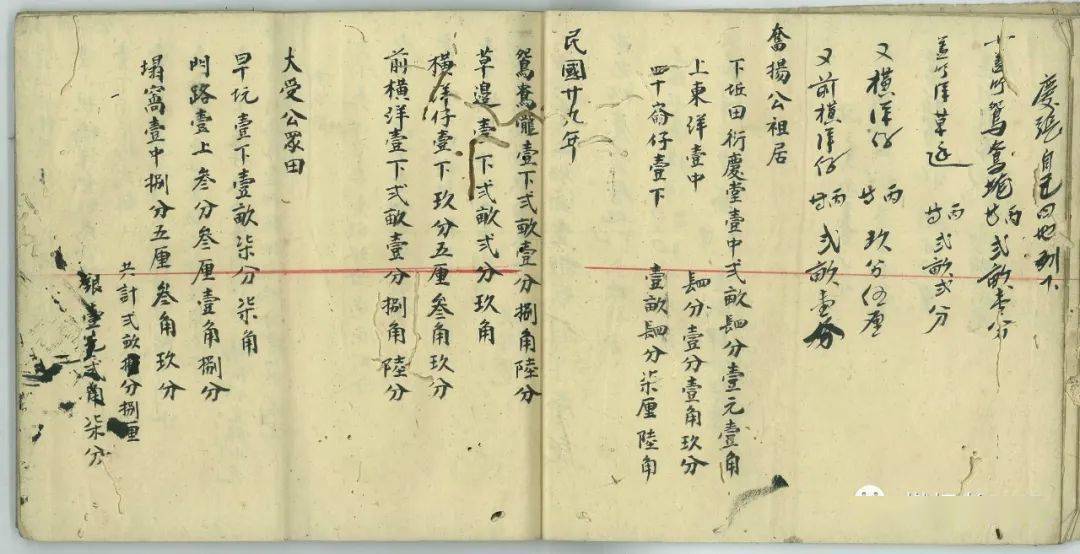 慶張自己田地列下
善竹鴛鴦 丙 弐畝壹分
善竹洋草边 丙 弐畝弐分
又横洋仔 丙 玖分伍厘
又前横洋仔 丙 弐畝壹分
奮揚公祖居
下坵田衍慶堂壹中弍畝肆分壹元壹角
上東洋壹中 肆分壹分壹角玖分
四十崙仔壹下 壹畝肆分柒厘陸角
民國廿九年
鴛鴦壠壹下弍畝壹分捌角陸分
草邉壹下弍畝弍分玖角
横洋仔壹下玖分五厘叁角玖分
前横洋壹下弍畝壹分捌角陸分
大受公眾田
旱坑壹下壹畝柒分柒角
門路壹上叁分叁厘壹角捌分
塌窩壹中捌分五厘叁角玖分
共計弍畝分捌厘
銀壹元弍角柒分